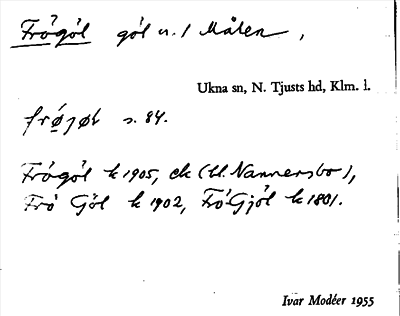 Frögöl göl n. / Målen,
Ukna sn, N. Tjusts hd, Klm. l.
frǿjøl s. 84.
Frögöl k 1905, ek (bl. Nannersbo),
Frö Göl k 1902, FröGjöl k 1801.
Ivar Modéer 1955